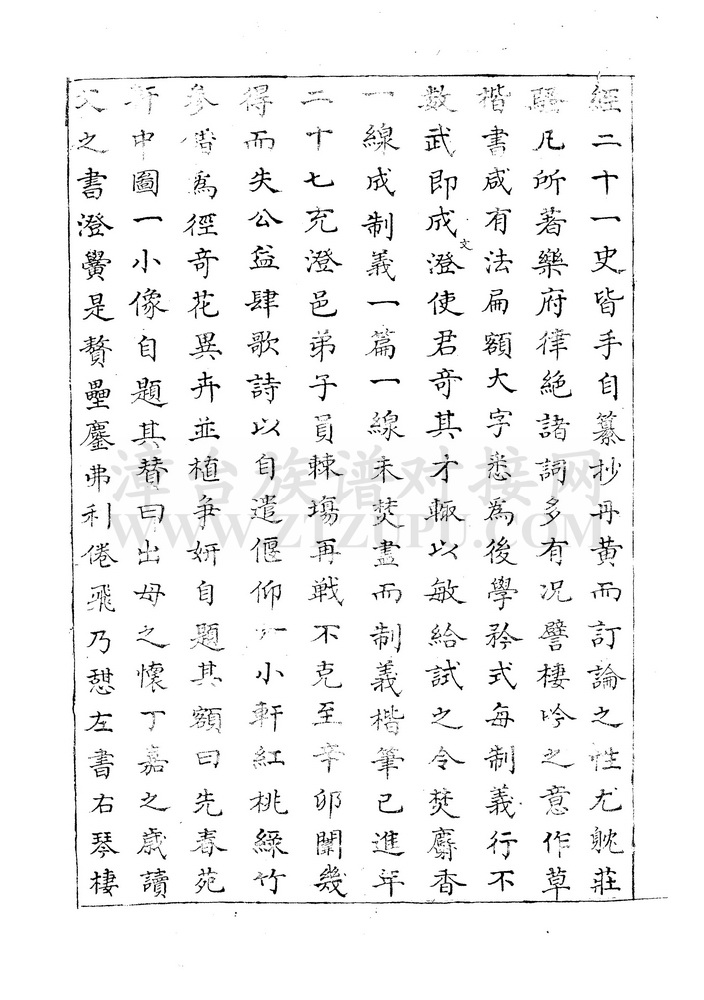 經二十一史皆手自纂抄丹黃而訂論之性尤躭莊
騷凡所著樂府律絕諸詞多有况譬棲吟之意作草
楷書咸有法扁額大字悉為後學矜式每制義行不
數武即成文澄使君奇其才輒以敏給試之令焚麝香
一線成制義一篇一線未焚盡而制義楷筆已進年
二十七充澄邑弟子員棘塲再戰不克至辛卯闈幾
得而失公益肆歌詩以自遣偃仰一小軒紅桃綠竹
參僭為徑奇花異卉並植爭妍自題其額曰先春苑
軒中圖一小像自題其替曰出母之懷丁嘉之歲讀
父之書澄黌是贅壘鏖弗利倦飛乃憇左書右琴棲
津台族谱对接网
WWW.ZTZUPU.COM